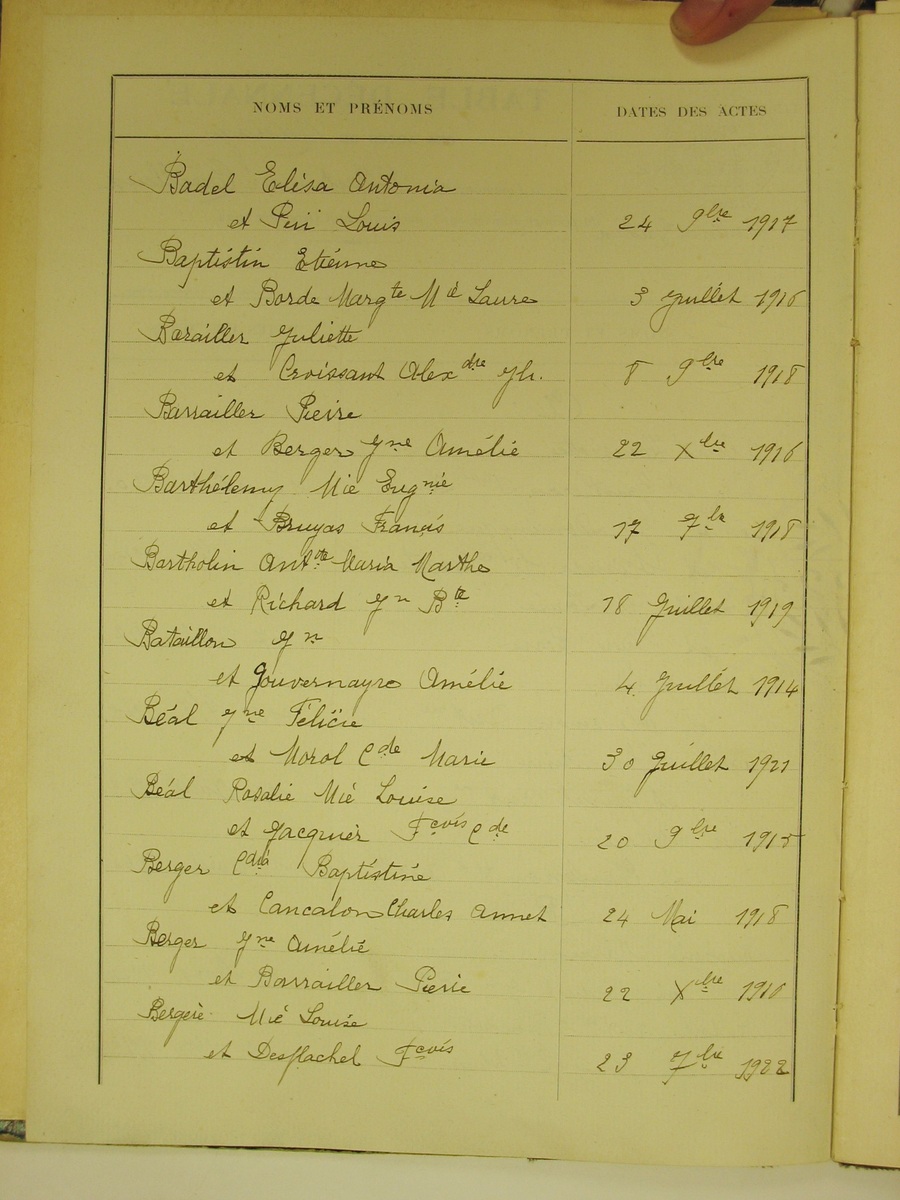 NOMS ET PRÉNOMS DATES DES ACTES
Badel Elisa Antonia
et Piri Louis 24 9bre 1917
Baptistin Etienne
et Borde Margte Mie Laure 3 Juillet 1916
Barailler Juliette
et Croissant Alexdre Jh. 8 9bre 1918
Barrailler Pierre
et Berger Jne Amélie 22 Xbre 1916
Barthélemy Mie Eugnie
et Bruyas Francis 17 7bre 1918
Bartholin Anttte Maria Marthe
et Richard Jn Bte 18 Juillet 1919
Bataillon Jn
et Gouvernayre Amélie 4 Juillet 1914
Béal Jne Félicie
et Morol Cde Marie 30 Juillet 1921
Béal Rosalie Mie Louise
et Jacquier Fcois Cde 20 9bre 1915
Berger Cdia Baptistine
et Cancalon Charles Annet 24 Mai 1918
Berger Jne Amélie
et Barrailler Pierre 22 Xbre 1916
Bergère Mie Louise
et Desflachel Fcois 23 7bre 1922